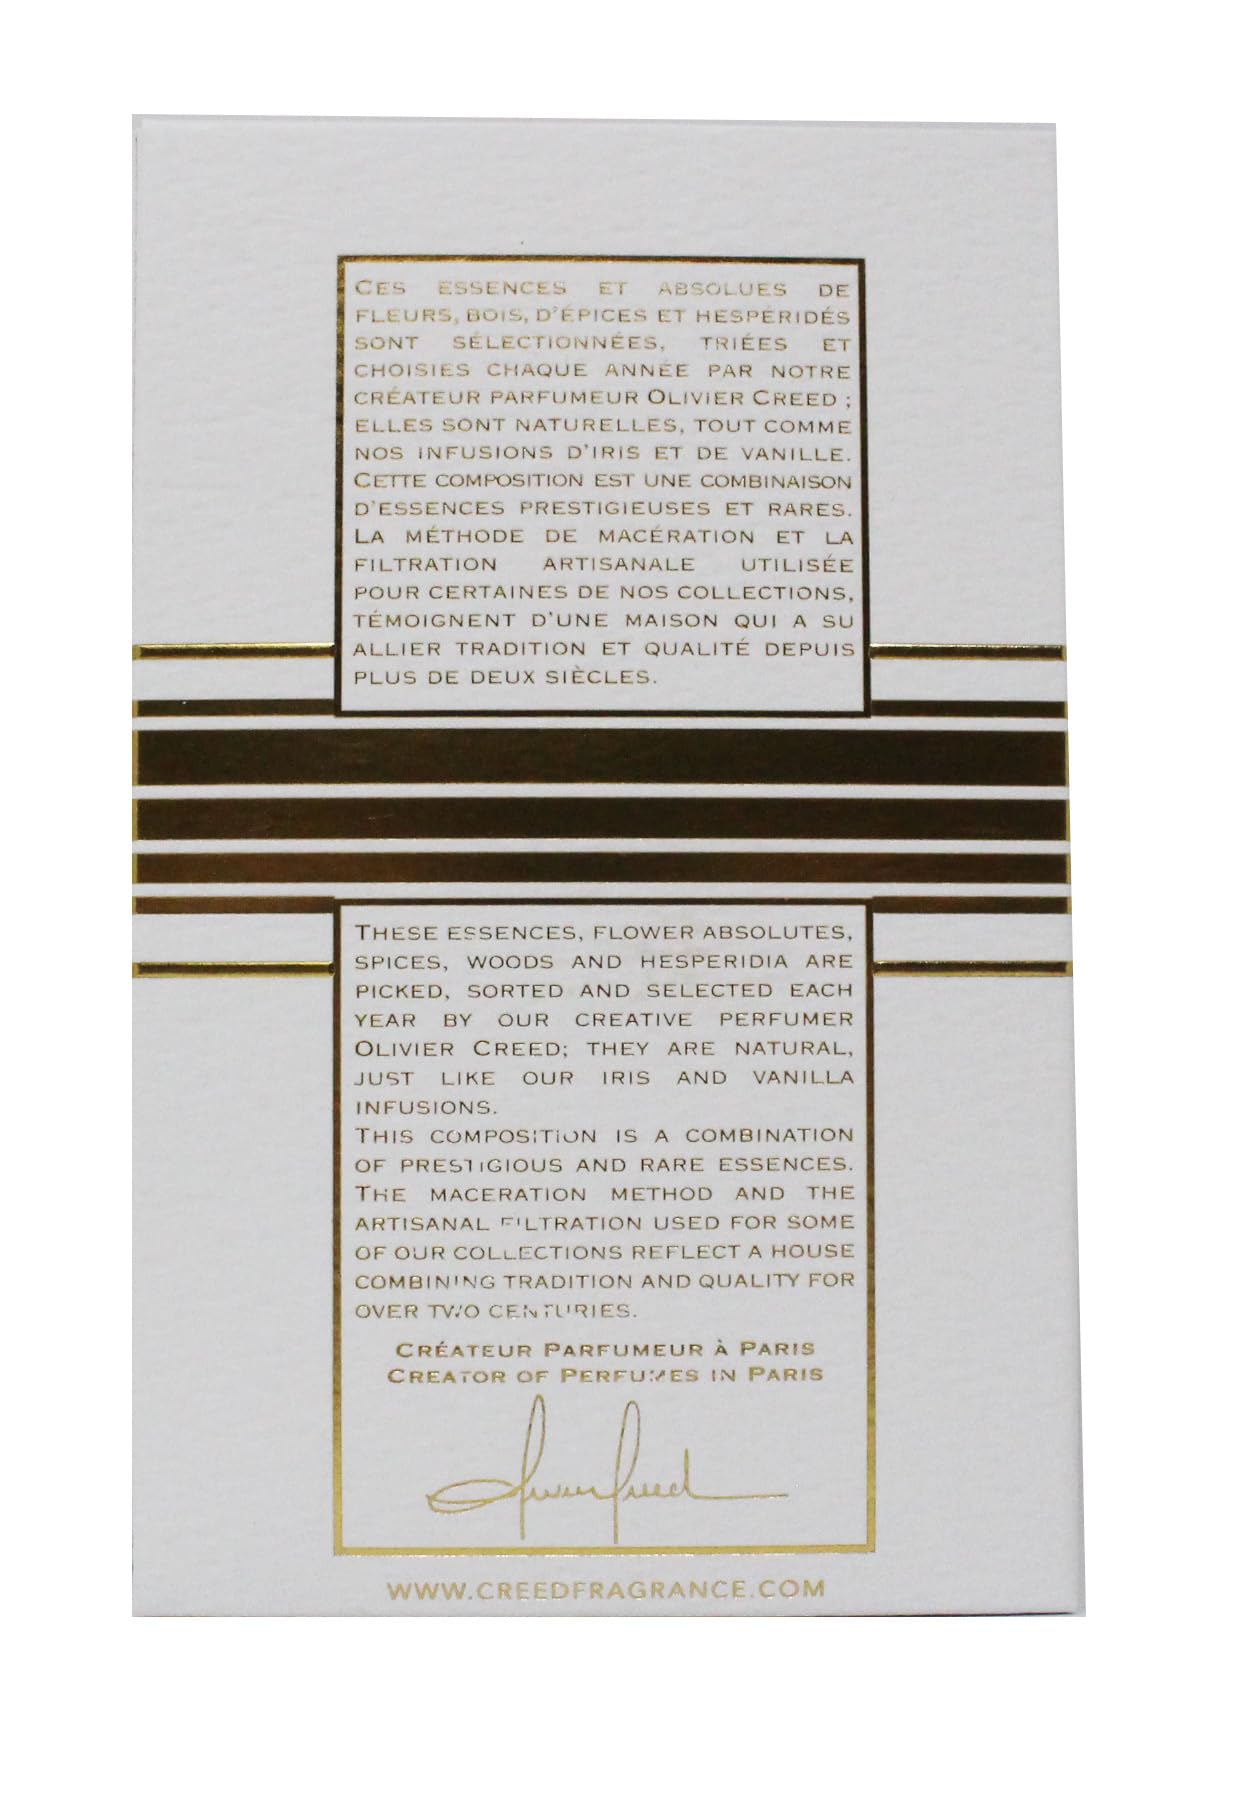 CES ESSENCES ET ABSOLUES DE
FLEURS, BOIS, D'ÉPICES ET HESPÉRIDÉS
SONT SÉLECTIONNÉES, TRIÉES ET
CHOISIES CHAQUE ANNÉE PAR NOTRE
CRÉATEUR PARFUMEUR OLIVIER CREED ;
ELLES SONT NATURELLES, TOUT COMME
NOS INFUSIONS D'IRIS ET DE VANILLE.
CETTE COMPOSITION EST UNE COMBINAISON
D'ESSENCES PRESTIGIEUSES ET RARES.
LA MÉTHODE DE MACÉRATION ET LA
FILTRATION ARTISANALE UTILISÉE
POUR CERTAINES DE NOS COLLECTIONS,
TÉMOIGNENT D'UNE MAISON QUI A SU
ALLIER TRADITION ET QUALITÉ DEPUIS
PLUS DE DEUX SIÈCLES.
THESE ESSENCES, FLOWER ABSOLUTES,
SPICES, WOODS AND HESPERIDIA ARE
PICKED, SORTED AND SELECTED EACH
YEAR BY OUR CREATIVE PERFUMER
OLIVIER CREED; THEY ARE NATURAL,
JUST LIKE OUR IRIS AND VANILLA
INFUSIONS.
THIS COMPOSITION IS A COMBINATION
OF PRESTIGIOUS AND RARE ESSENCES.
THE MACERATION METHOD AND THE
ARTISANAL FILTRATION USED FOR SOME
OF OUR COLLECTIONS REFLECT A HOUSE
COMBINING TRADITION AND QUALITY FOR
OVER TWO CENTURIES.
CRÉATEUR PARFUMEUR À PARIS
CREATOR OF PERFUMES IN PARIS
Olivier Creed
WWW.CREEDFRAGRANCE.COM